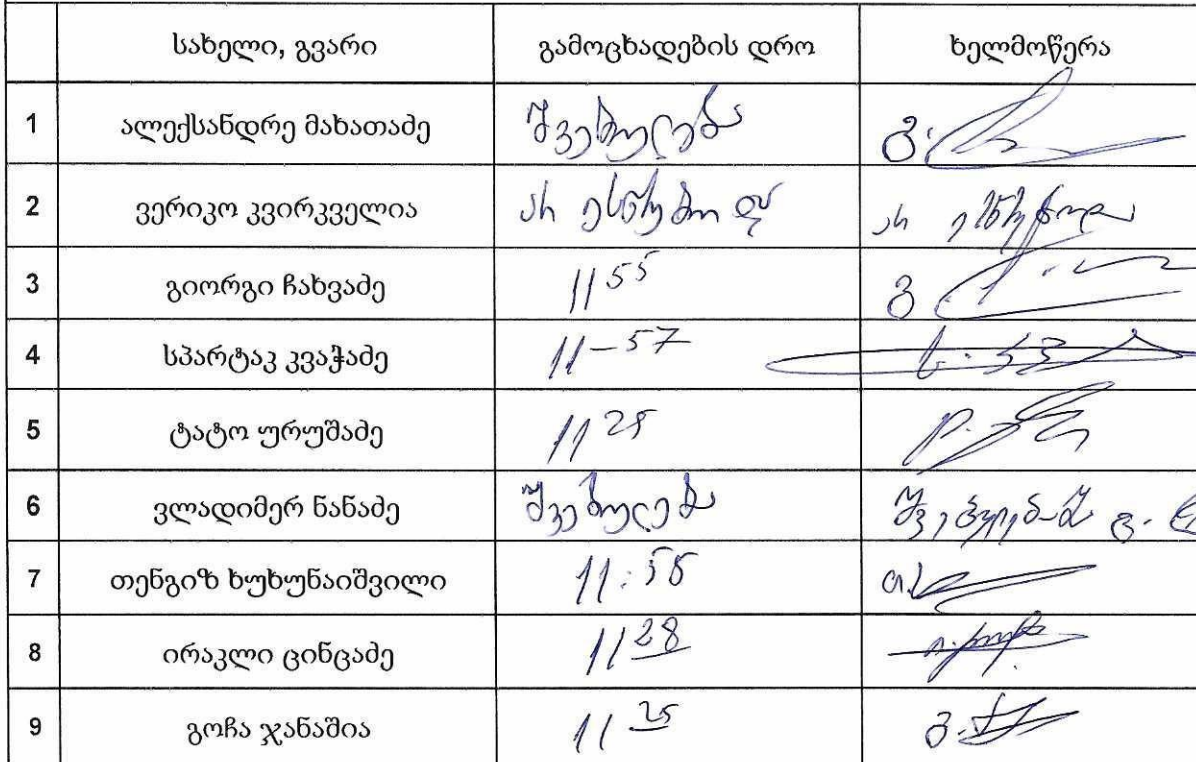 სახელი, გვარი გამოცხადების დრო ხელმოწერა
1 ალექსანდრე მახათაძე შვებულება
2 ვერიკო კვირკველია არ ესწრებოდა არ ესწრებოდა
3 გიორგი ჩახვაძე 11 55
4 სპარტაკ კვაჭაძე 11-57
5 ტატო ურუშაძე 11
6 ვლადიმერ ნანაძე შვებულება
7 თენგიზ ხუხუნაიშვილი
8 ირაკლი ცინცაძე 11 28
9 გოჩა ჯანაშია 11 25